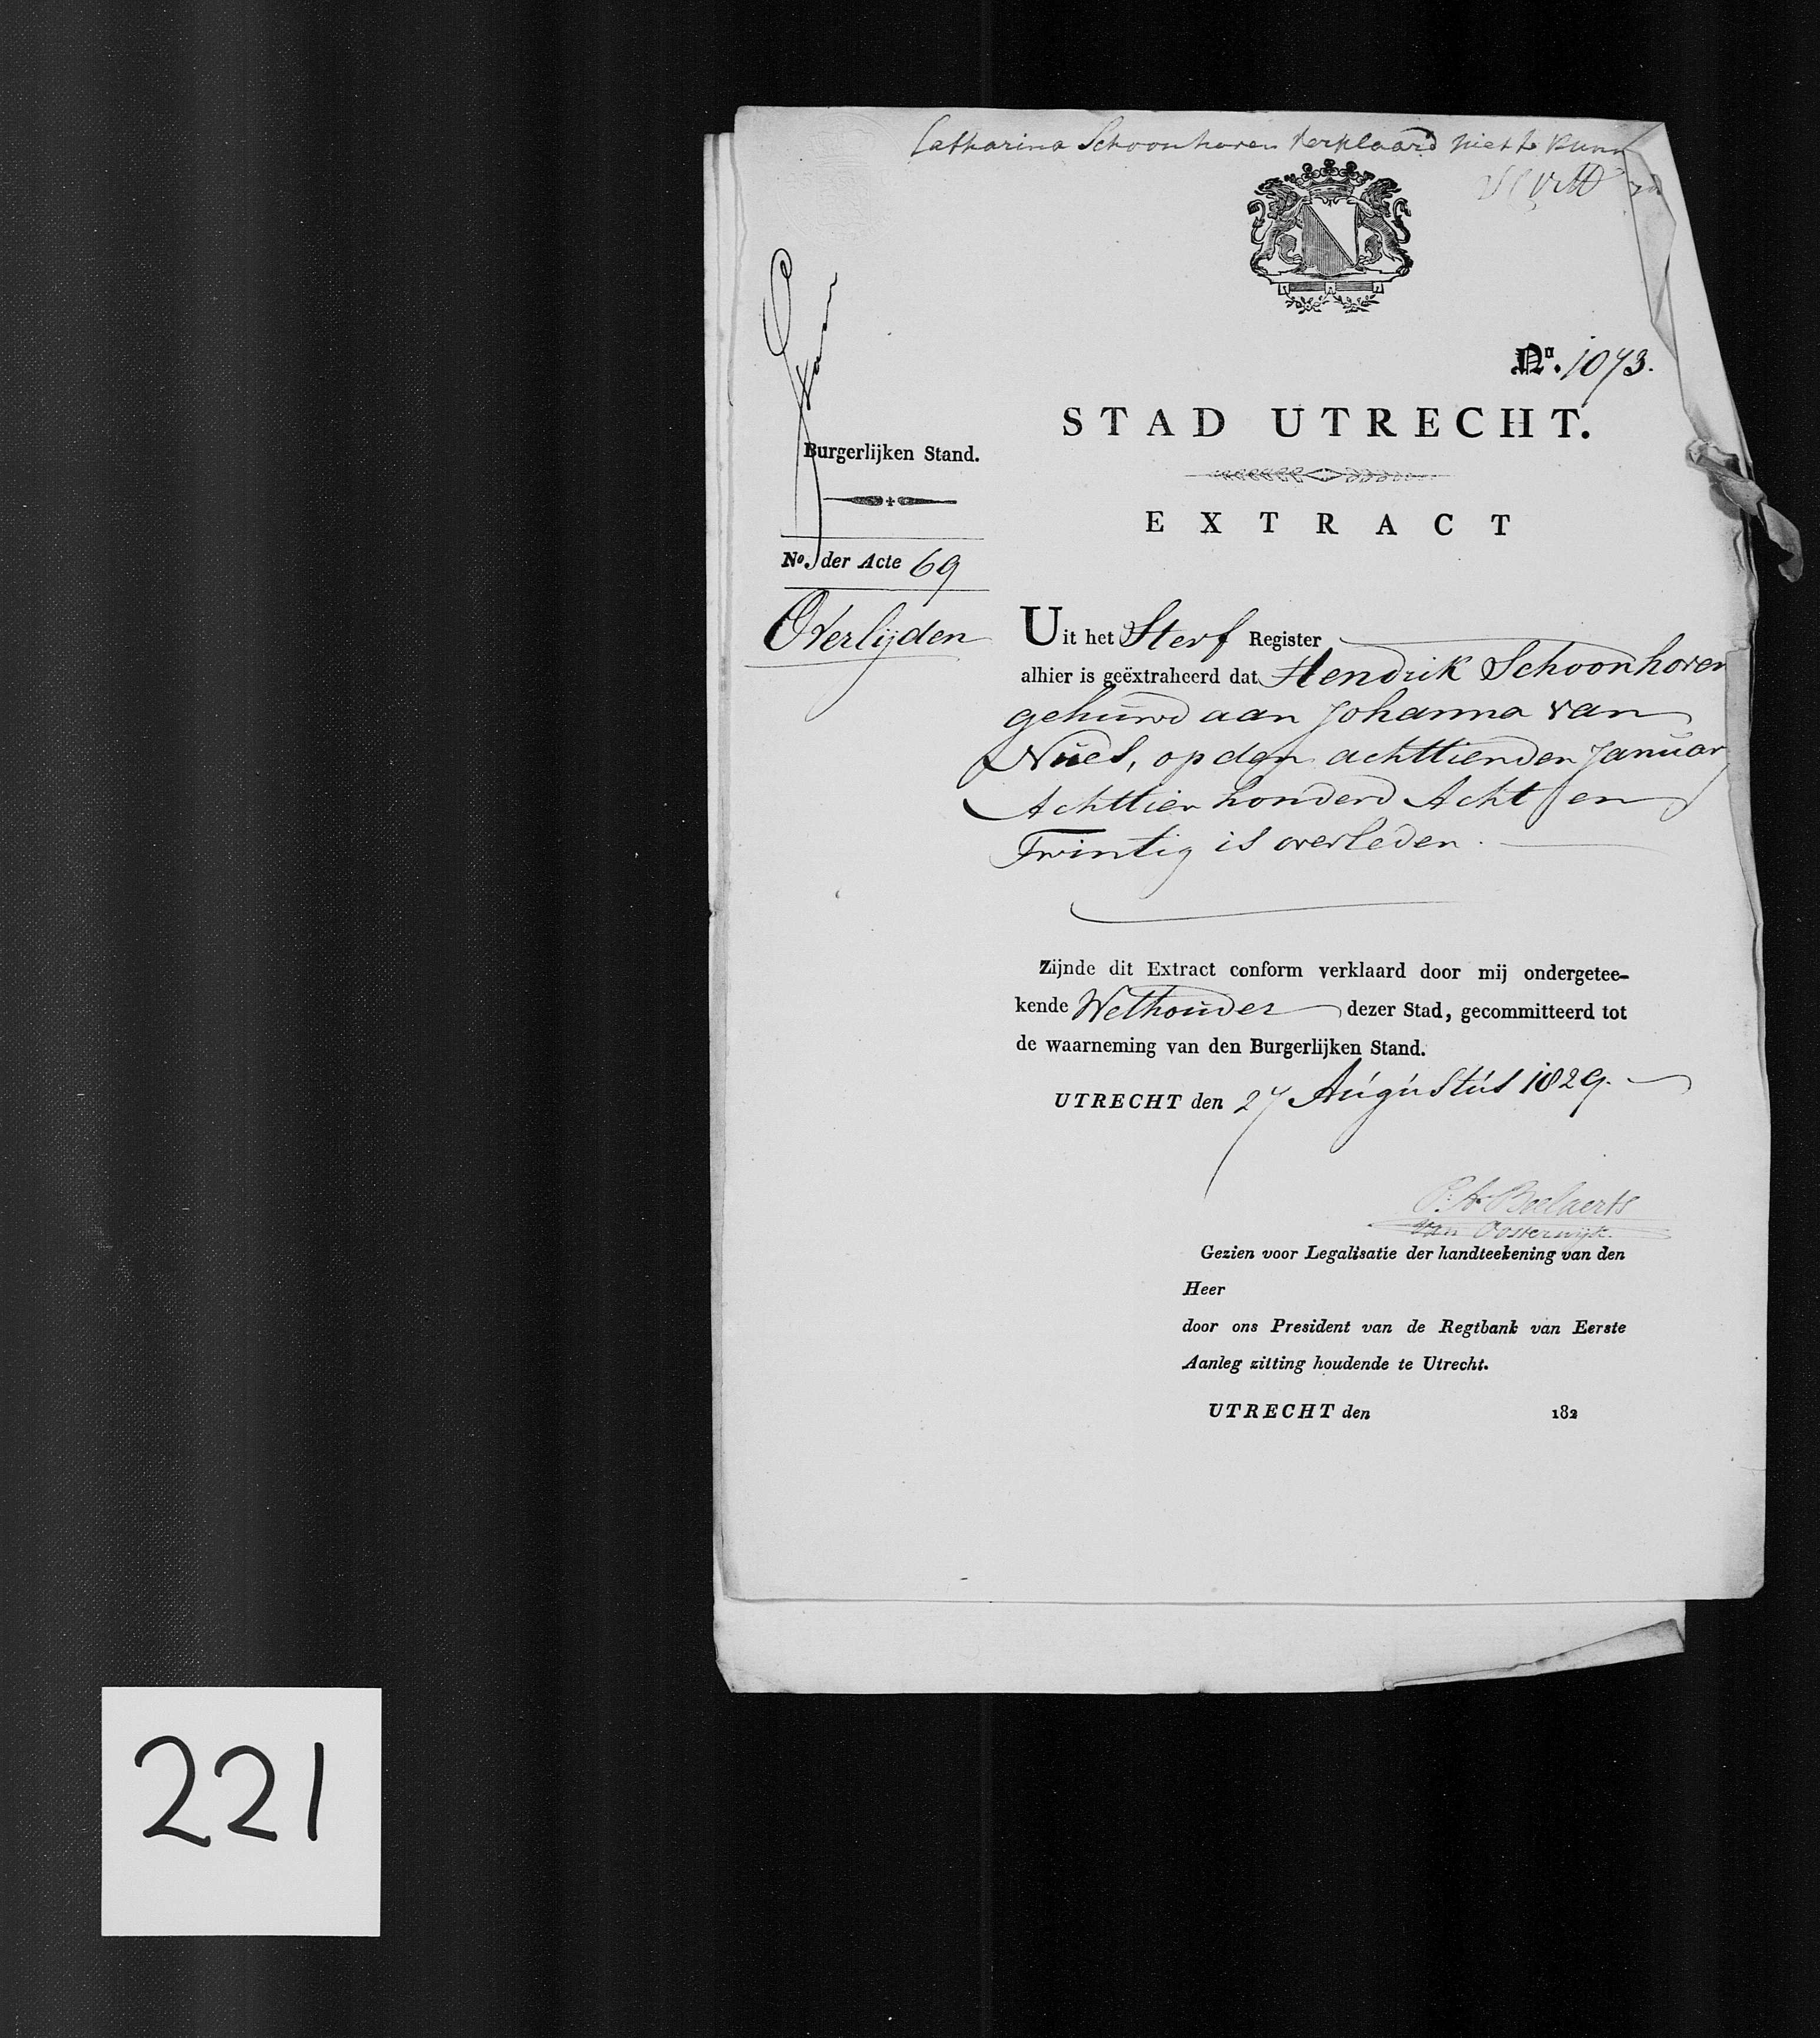 Catharina Schoonhoven verklaard niet te kunn
No. 1073.
STAD UTRECHT.
Burgerlijken Stand.
EXTRACT
No. der Acte 69
Overlijden
Uit het Sterf Register
alhier is geëxtraheerd dat Hendrik Schoonhoven
gehuwd aan Johanna van
Nues, op den achttienden Januar
Achttien honderd Acht en
Twintig is overleden.
Zijnde dit Extract conform verklaard door mij ondergetee-
kende Wethouder dezer Stad, gecommitteerd tot
de waarneming van den Burgerlijken Stand.
UTRECHT den 27 Augustus 1829.
P. A. Beelaerts
van Oosterwijk.
Gezien voor Legalisatie der handteekening van den
Heer
door ons President van de Regtbank van Eerste
Aanleg zitting houdende te Utrecht.
UTRECHT den 182
221